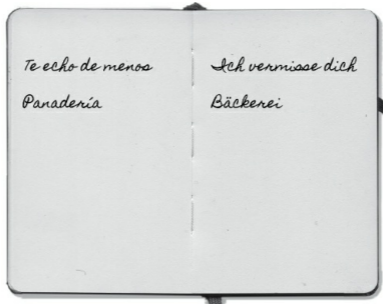 Te echo de menos
Panadería
Ich vermisse dich
Bäckerei